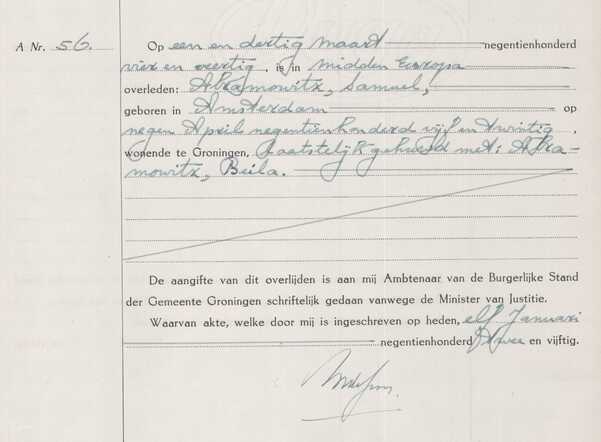 A Nr. 56.
Op een en dertig maart negentienhonderd
vier en veertig, is in midden Europa
overleden: Abramowitz, Samuel,
geboren in Amsterdam op
negen April negentienhonderd vijf en twintig,
wonende te Groningen, laatstelijk gehuwd met: Abra-
mowitz, Beila.
De aangifte van dit overlijden is aan mij Ambtenaar van de Burgerlijke Stand
der Gemeente Groningen schriftelijk gedaan vanwege de Minister van Justitie.
Waarvan akte, welke door mij is ingeschreven op heden, elf Januari
negentienhonderd twee en vijftig.